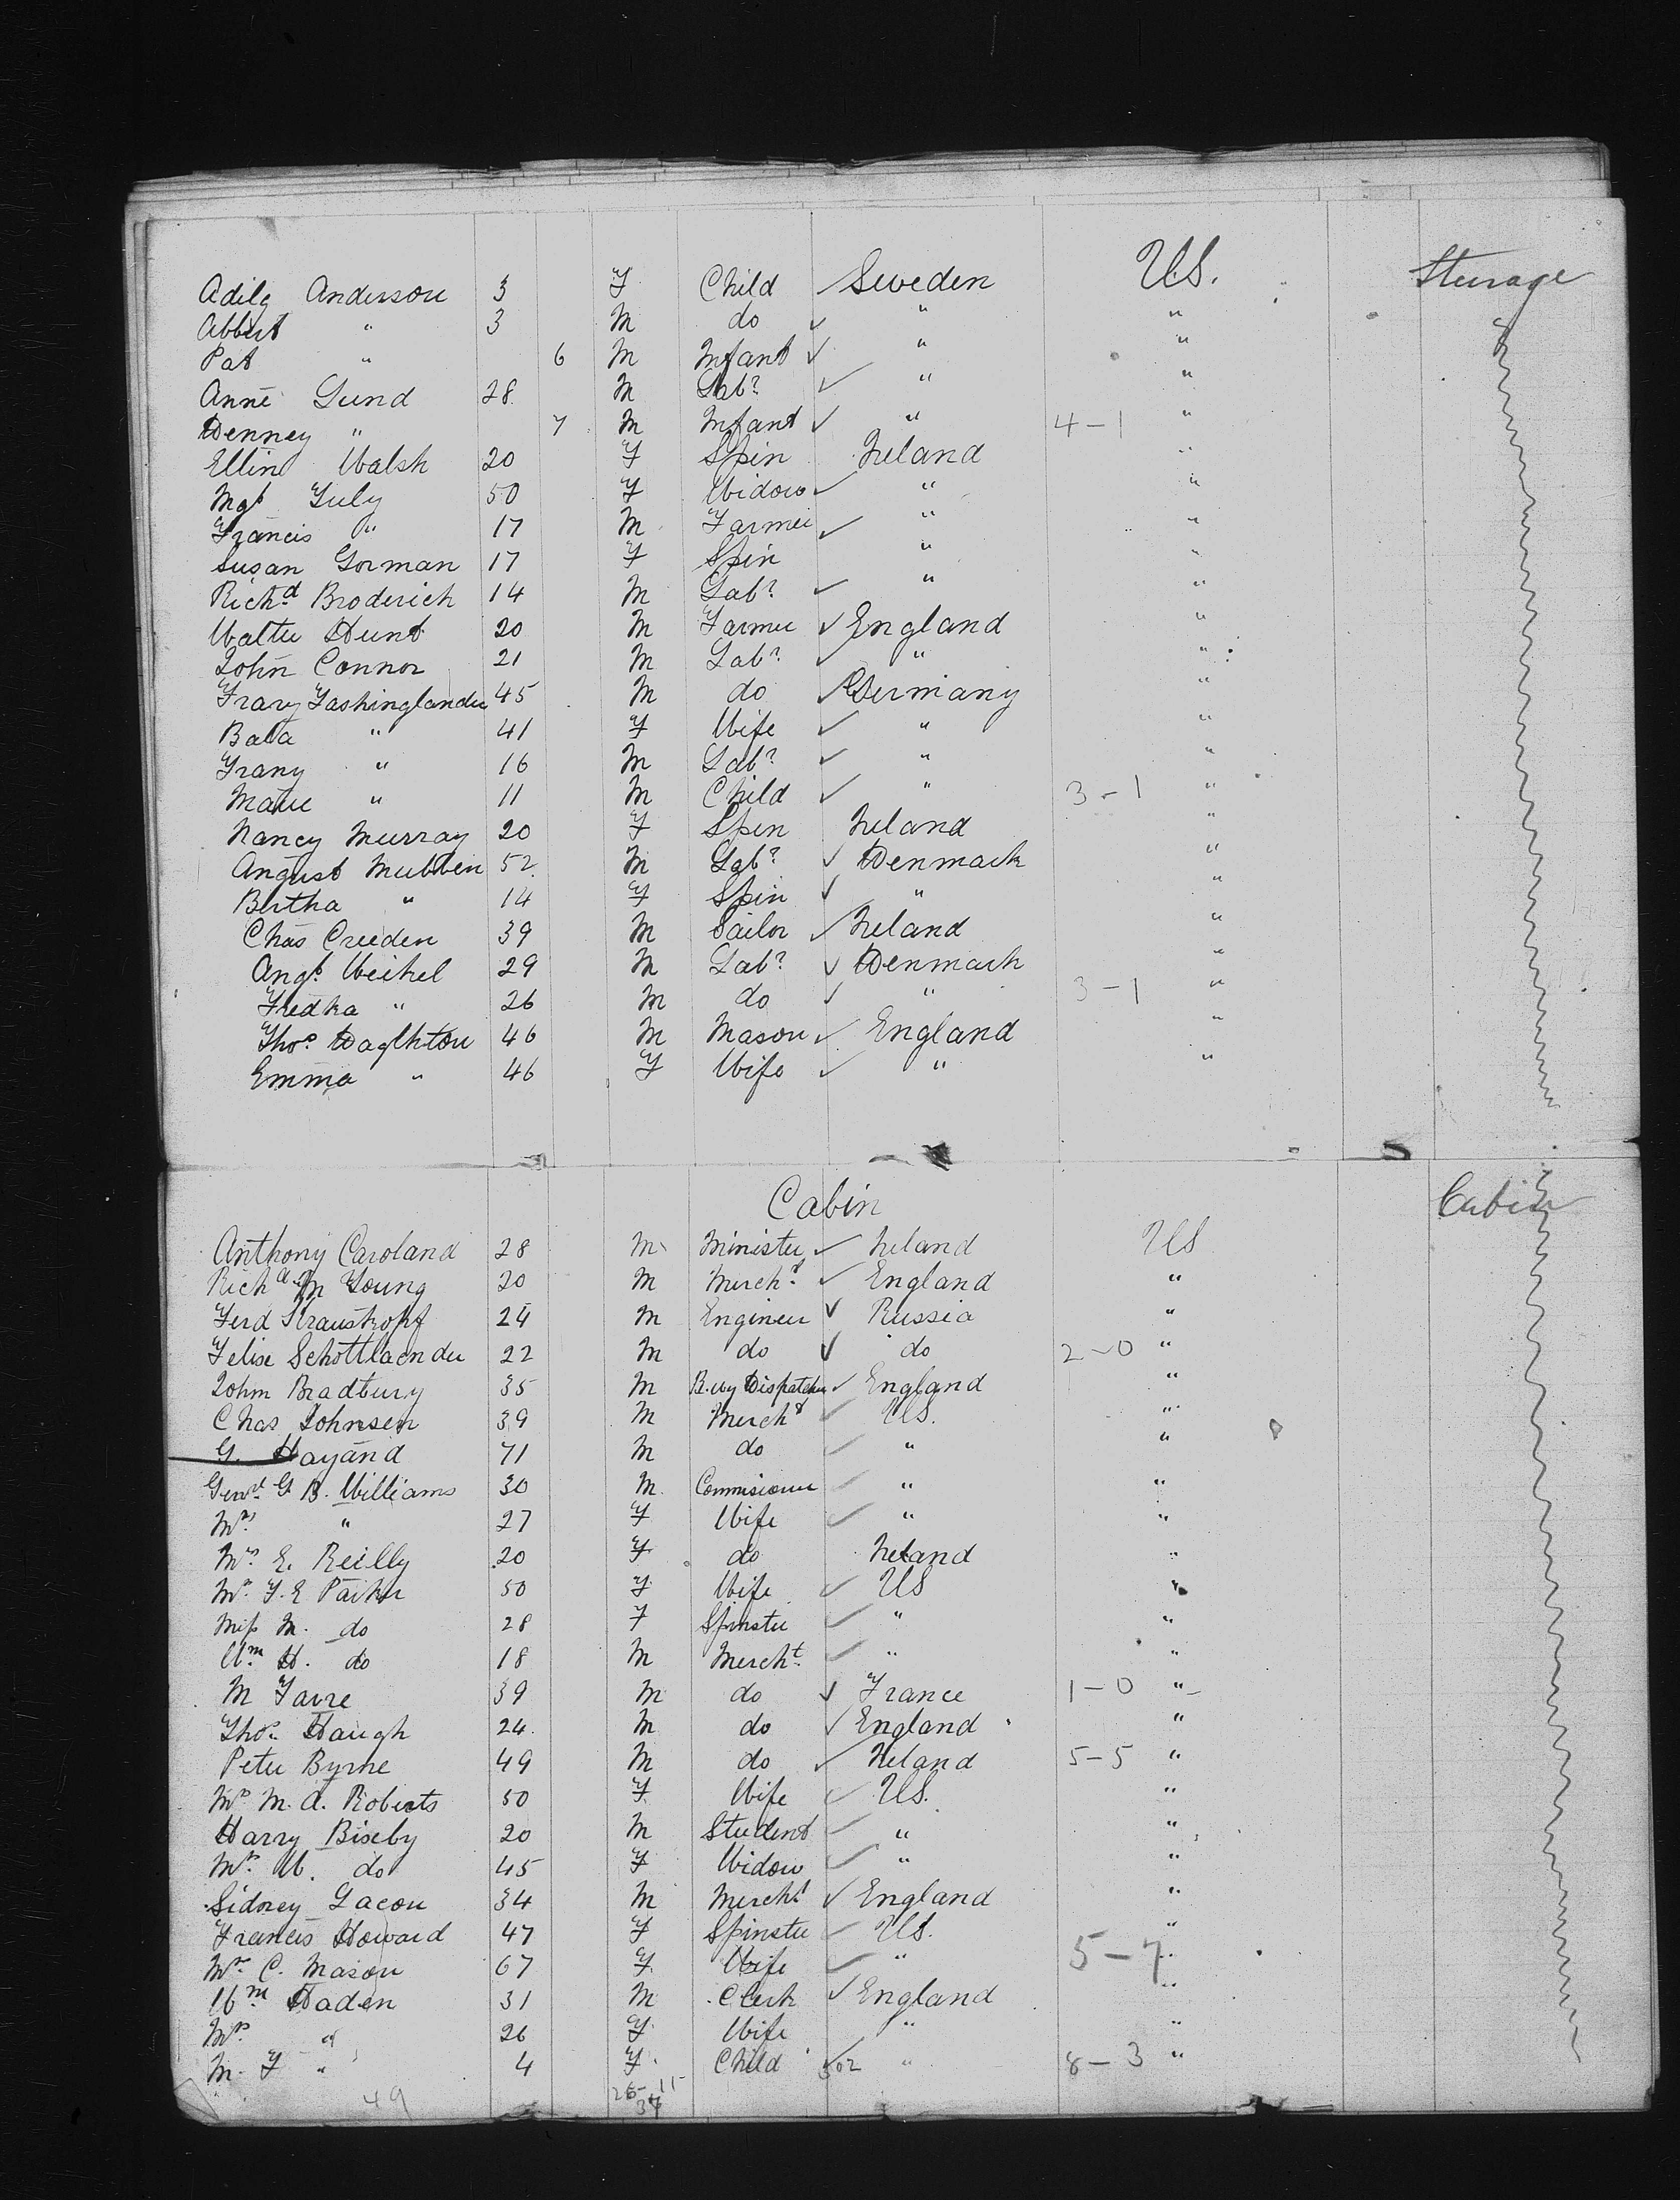 Adilg Anderson 3 F Child Sweden U.S. Steerage
Abbert " 3 M do " "
Pat " 6 M Infant " "
Anne Lund 28 M Labr " "
Denney " 7 M Infant " 4-1 "
Ellin Walsh 20 F Spin Ireland "
Mgt July 50 F Widow " "
Francis " 17 M Farmer " "
Susan Gorman 17 F Spin " "
Richd Broderick 14 M Labr " "
Walter Hunt 20 M Farmer England "
John Connor 21 M Labr " "
Franz Lashinglander 45 M do Germany "
Bata " 41 F Wife " "
Franz " 16 M Labr " "
Marie " 11 M Child " 3-1 "
Nancy Murray 20 F Spin Ireland "
August Mubben 52 M Labr Denmark "
Bertha " 14 F Spin " "
Chas Creeden 39 M Sailor Ireland "
Augt Weikel 29 M Labr Denmark "
Fredka " 26 M do " 3-1 "
Thos Daghton 46 M Mason England "
Emma " 46 F Wife " "
Cabin Cabin
Anthony Caroland 28 M Minister Ireland US
Richd M Young 20 M Mercht England "
Ferd Strauskopf 24 M Engineer Russia "
Felix Schottlaender 22 M do do 2-0 "
John Bradbury 35 M R.wy Dispatcher England "
Chas Johnsen 39 M Mercht U.S. "
G. Hayand 71 M do " "
Genrl G B. Williams 30 M Commisioner " "
Mrs " 27 F Wife " "
Mrs E. Reilly 20 F do Ireland "
Mrs F. E Parker 50 F Wife US "
Miss M. do 28 F Spinster " "
Wm H. do 18 M Mercht " "
M Favre 39 M do France 1-0 "
Thos Haugh 24 M do England "
Peter Byrne 49 M do Ireland 5-5 "
Mrs M. A. Roberts 50 F Wife U.S. "
Harry Bixby 20 M Student " "
Mrs W. do 45 F Widow " "
Sidney Lacon 34 M Mercht England "
Frances Howard 47 F Spinster U.S. "
Mrs C. Mason 67 F Wife " 5-7 "
Wm Haden 31 M Clerk England "
Mrs " 26 F Wife " "
M. F " 4 F Child " 8-3 "
49